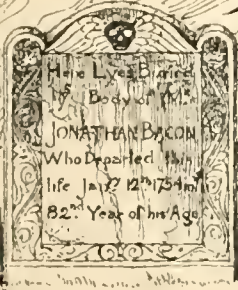 Here Lyes Buried
yᵉ Body of Mʳ
JONATHAN BACON
Who Departed this
life Jaⁿʸ 12ᵗʰ 1754 in yᵉ
82ⁿᵈ Year of his Age